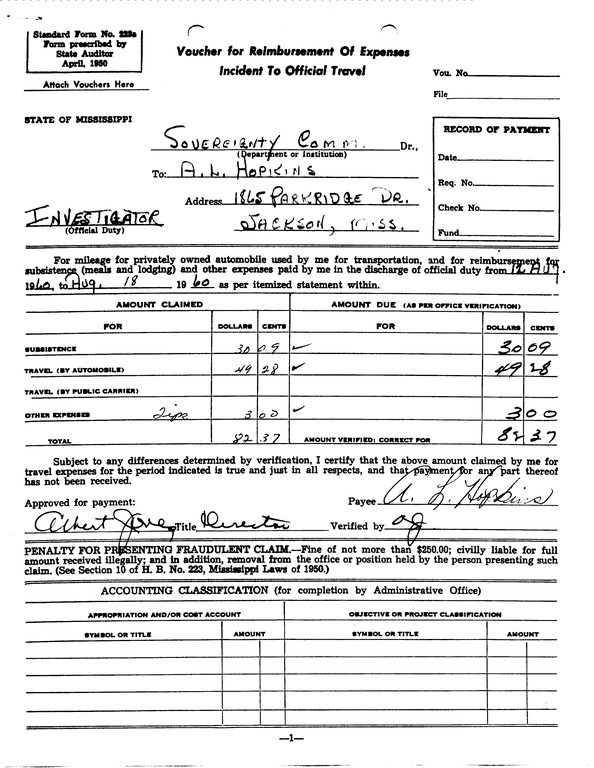 Standard Form No. 223a
Form prescribed by
State Auditor
April, 1950
Attach Vouchers Here
Voucher for Reimbursement Of Expenses
Incident To Official Travel
Vou. No.
File
STATE OF MISSISSIPPI
SOVEREIGNTY COMM. Dr.,
(Department or Institution)
To: A. L. HOPKINS
Address 1865 PARKRIDGE DR.
JACKSON, MISS.
INVESTIGATOR
(Official Duty)
RECORD OF PAYMENT
Date
Req. No.
Check No.
Fund
For mileage for privately owned automobile used by me for transportation, and for reimbursement for
subsistence (meals and lodging) and other expenses paid by me in the discharge of official duty from 12 Aug.
1960, to Aug. 18 1960 as per itemized statement within.
AMOUNT CLAIMED AMOUNT DUE (AS PER OFFICE VERIFICATION)
FOR DOLLARS CENTS FOR DOLLARS CENTS
SUBSISTENCE 30 09 ✓ 30 09
TRAVEL (BY AUTOMOBILE) 49 28 ✓ 49 28
TRAVEL (BY PUBLIC CARRIER)
OTHER EXPENSES Tips 3 00 ✓ 3 00
TOTAL 82 37 AMOUNT VERIFIED: CORRECT FOR 82 37
Subject to any differences determined by verification, I certify that the above amount claimed by me for
travel expenses for the period indicated is true and just in all respects, and that payment for any part thereof
has not been received.
Approved for payment: Payee A. L. Hopkins
Albert Jones Title Director Verified by aj
PENALTY FOR PRESENTING FRAUDULENT CLAIM.—Fine of not more than $250.00; civilly liable for full
amount received illegally; and in addition, removal from the office or position held by the person presenting such
claim. (See Section 10 of H. B. No. 223, Mississippi Laws of 1950.)
ACCOUNTING CLASSIFICATION (for completion by Administrative Office)
APPROPRIATION AND/OR COST ACCOUNT OBJECTIVE OR PROJECT CLASSIFICATION
SYMBOL OR TITLE AMOUNT SYMBOL OR TITLE AMOUNT
—1—